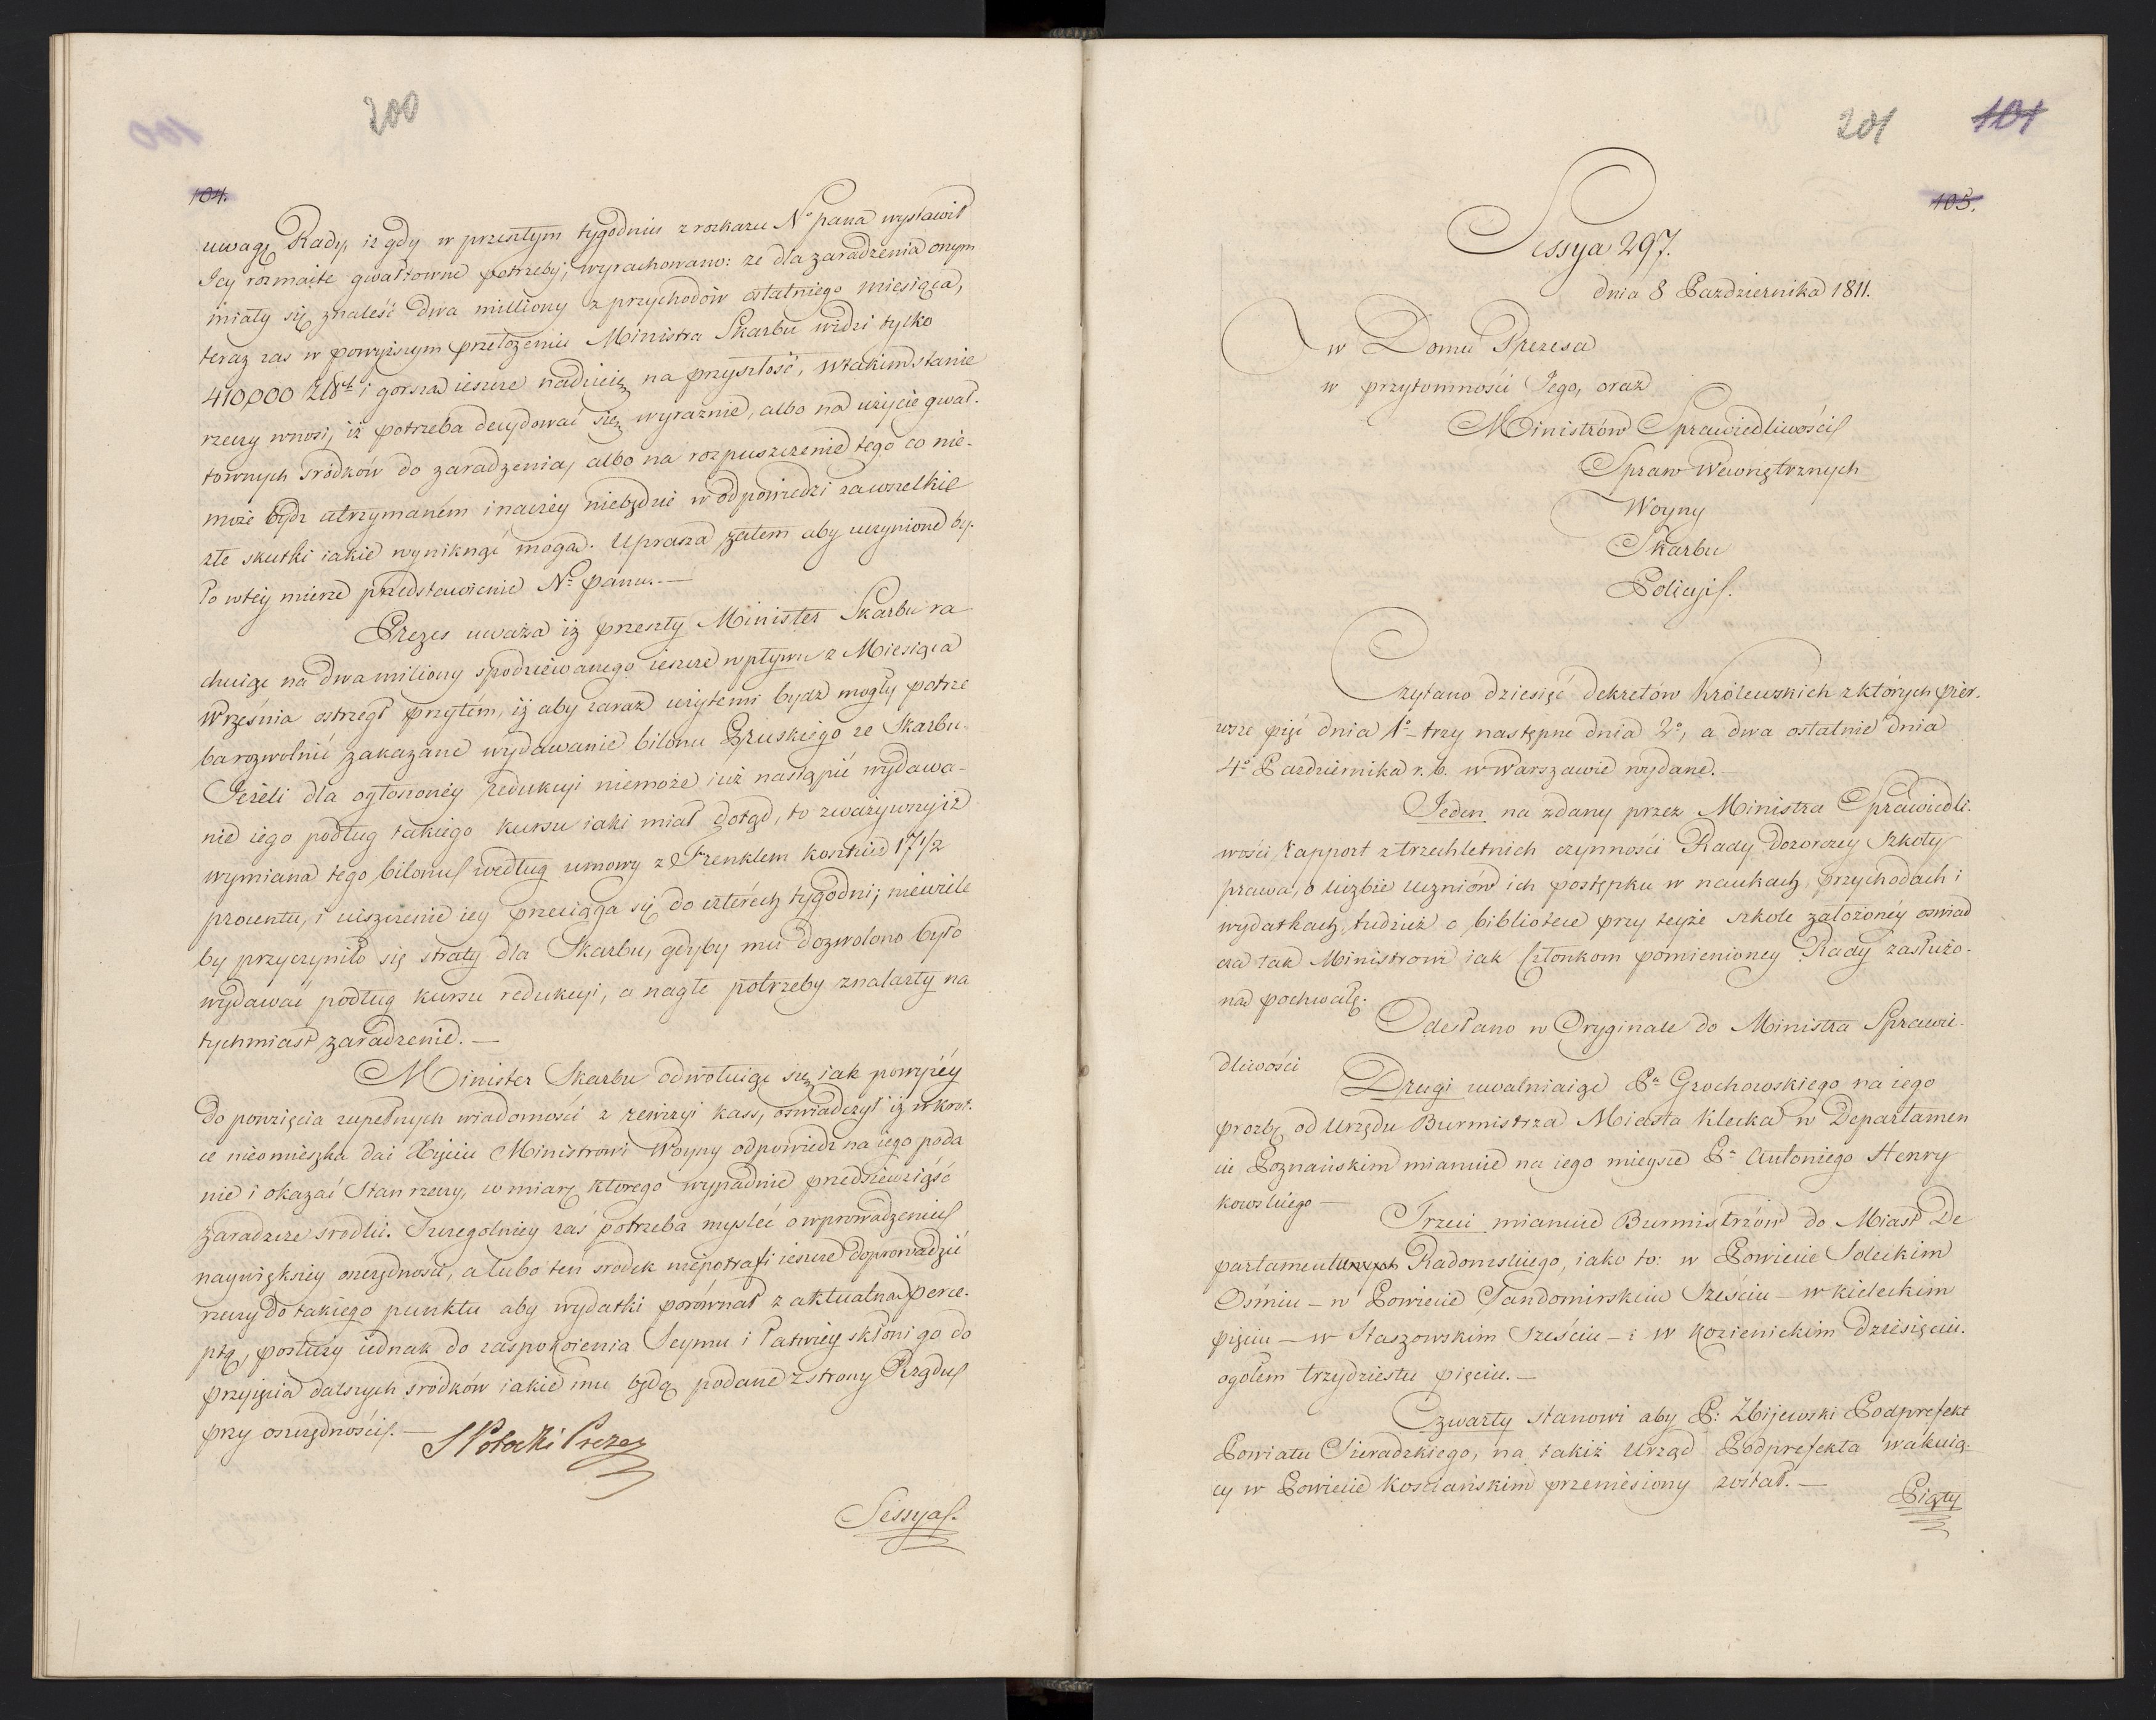 200
104.
uwagę Rady, iż gdy w przeszłym tygodniu z rozkazu N° pana wystawił
Jey rozmaite gwałtowne potrzeby, wyrachowano: że dla zaradzenia onym
miały się znaleść dwa milliony z przychodów ostatniego miesiąca,
teraz zas w powyższym przełożeniu Ministra Skarbu widzi tylko
410,000 Złt i gorszą ieszcze nadzieię na przyszłość, wtakim stanie
rzeczy wnosi, iż potrzeba decydować się wyraznie, albo na użycie gwał-
townych srodków do zaradzenia, albo na rozpuszczenie tego co nie-
może bydz utrzymaném inaczéy niebędzie w odpowiedzi za wszelkie
złe skutki iakie wyniknąć mogą. Uprasza zatem aby uczynione by-
ło wtéy mierze przedstawienie N° panu. —
Prezes uważa iż przeszły Minister Skarbu ra
chuiąc na dwa miliony spodziewanego ieszcze wpływu z Miesiąca
Września ostrzegł przytém, iż aby zaraz użytemi bydz mogły potrze
ba rozwolnić zakazane wydawanie bilonu Pruskiego ze Skarbu.
Jeżeli dla ogłoszonéy redukcyi niemoże iuż nastąpić wydawa-
nie iego podług takiego kursu iaki miał dotąd, to zważywszy iż
wymiana tego bilonu według umowy z Frenklem kosztuie 17 1/2
procentu, i uiszczenie iey przeciąga się do czterech tygodni; niewiele
by przyczyniło się straty dla Skarbu, gdyby mu dozwolono było
wydawać podług kursu redukcyi, a nagłe potrzeby znalazły na
tychmiast zaradzenie. —
Minister Skarbu odwołuiąc się iak powyżéy
do powzięcia zupełnych wiadomości z rewizyi kass, oswiadczył iż wkrot-
ce nieomieszka dać Xięciu Ministrowi Woyny odpowiedz na iego poda
nie i okazać Stan rzeczy, w miarę ktorego wypadnie przedsiewziąść
zaradcze srodki. Szczegolniéy zaś potrzeba mysleć o wprowadzeniu
naywiększéy oszczędności, a lubo ten srodek niepotrafi ieszcze doprowadzić
rzeczy do takiego punktu aby wydatki porównał z aktualną perce-
ptą, posłuży iednak do zaspokoienia Seymu i łatwiéy skłoni go do
przyięcia dalszych srodków iakie mu będą podane z strony Rządu
przy oszczędności. —
S Potocki Prezes
Sessya.
201
101
105.
Sessya 297.
dnia 8 Pazdziernika 1811.
w Domu Prezesa
w przytomności Jego, oraz
Ministrów Sprawiedliwości
Spraw Wewnętrznych
Woyny
Skarbu
Policyi.
Czytano dziesięć dekretów Królewskich z których pier-
wsze pięć dnia 1° – trzy następne dnia 2°, a dwa ostatnie dnia
4° Pazdziernika r. b. w Warszawie wydane. —
Jeden na zdany przez Ministra Sprawiedli-
wości rapport z trzechletnich czynności Rady Dozorczey Szkoły
prawa, o liczbie uczniów ich postępku w naukach, przychodach i
wydatkach, tudzież o bibliotece przy teyże szkole założonéy oswiad
cza tak Ministrowi iak Członkom pomienioney Rady zasłużo-
ną pochwałę.
Odesłano w Oryginale do Ministra Sprawie-
dliwości
Drugi uwalniaiąc Pa Grochowskiego na iego
prozbę od Urzędu Burmistrza Miasta Klecka w Departamen
cie Poznańskim mianuie na iego mieysce Pa Antoniego Henry
kowskiego —
Trzeci mianuie Burmistrzów do Miast De
partamentu Radomskiego, iako to: w Powiecie Soleckim
Ośmiu – w Powiecie Sandomirskim Sześciu – w Kieleckim
pięciu — w Staszowskim Sześciu – i w Kozienickim Dziesięciu.
ogołem trzydziestu pięciu. —
Czwarty stanowi aby P: Zbijewski Podprefekt
Powiatu Sieradzkiego, na takiż Urząd Podprefekta wakuią-
cy w Powiecie Kosciańskim przeniesiony został. —
Piąty